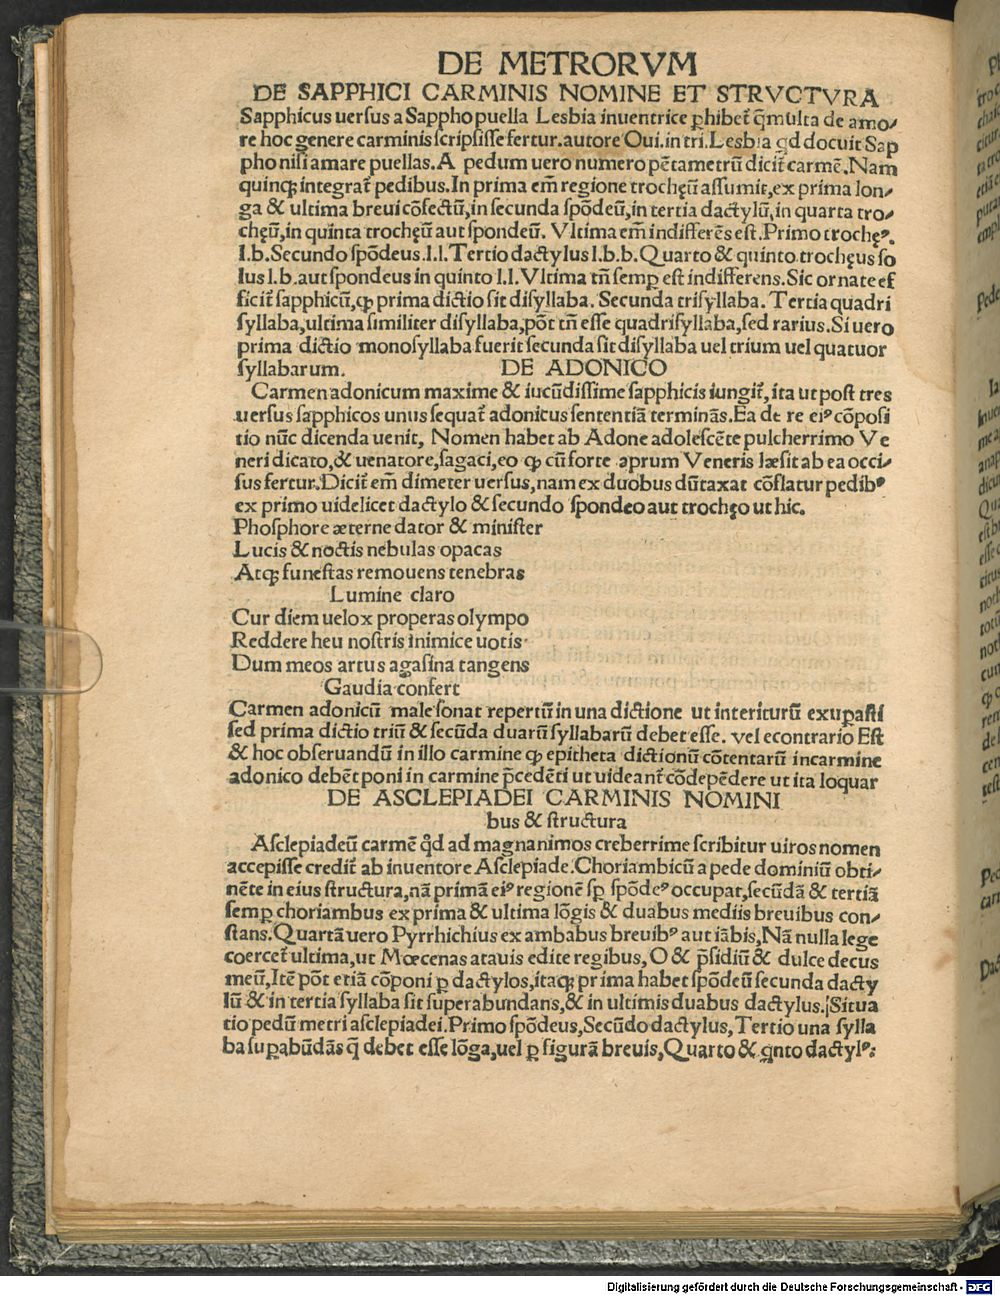 DE METRORVM
DE SAPPHICI CARMINIS NOMINE ET STRVCTVRA
Sapphicus uersus a Sappho puella Lesbia inuentrice ꝑhibet᷑ q̃multa de amo⸗
re hoc genere carminis ſcripſiſſe fertur.autore Oui.in tri.Lesbia qd docuit Sap
pho niſi amare puellas.A pedum uero numero pẽtametrũ dicit᷑ carmẽ.Nam
quinqꝫ integrat᷑ pedibus.In prima em̃ regione trochęũ aſſumit,ex prima lon⸗
ga & ultima breui cõfectũ,in ſecunda ſpõdeũ,in tertia dactylũ,in quarta tro⸗
chęũ,in quinta trochęũ aut spondeũ. Vltima em̃ indifferẽs eſt.Primo trochęꝰ.
l.b.Secundo ſpõdeus.l.l.Tertio dactylus l.b.b.Quarto & quinto trochęus ſo
lus l.b.aut spondeus in quinto l.l.Vltima tñ ſemꝑ eſt indifferens.Sic ornate ef
ficit᷑ ſapphicũ,ꝙ prima dictio ſit diſyllaba. Secunda triſyllaba. Tertia quadri
ſyllaba,ultima ſimiliter diſyllaba,põt tñ eſſe quadriſyllaba,ſed rarius.Si uero
prima dictio monoſyllaba fuerit ſecunda ſit diſyllaba uel trium uel quatuor
ſyllabarum. DE ADONICO
Carmen adonicum maxime & iucũdiſſime ſapphicis iungit᷑, ita ut poſt tres
uerſus ſapphicos unus ſequat᷑ adonicus ſententiã terminãs.Ea de re eiꝰ cõpoſi
tio nũc dicenda uenit, Nomen habet ab Adone adoleſcẽte pulcherrimo Ve
neri dicato,& uenatore,ſagaci,eo ꝙ cũ forte aprum Veneris læſit ab ea occi⸗
ſus fertur.Dicit᷑ em̃ dimeter uerſus,nam ex duobus dũtaxat cõflatur pedibꝰ
ex primo uidelicet dactylo & ſecundo ſpondeo aut trochęo ut hic.
Phoſphore æterne dator & miniſter
Lucis & noctis nebulas opacas
Atqꝫ funeſtas remouens tenebras
Lumine claro
Cur diem uelox properas olympo
Reddere heu noſtris inimice uotis
Dum meos artus agaſina tangens
Gaudia confert
Carmen adonicũ male ſonat repertũ in una dictione ut interiturũ exuꝑaſti
ſed prima dictio triũ & ſecũda duarũ ſyllabarũ debet eſſe. vel econtrario Eſt
& hoc obſeruandũ in illo carmine ꝙ epitheta dictionũ cõtentarũ in carmine
adonico debẽt poni in carmine p̃cedẽti ut uideant᷑ cõdepẽdere ut ita loquar
DE ASCLEPIADEI CARMINIS NOMINI
bus & ſtructura
Aſclepiadeũ carmẽ qd̃ ad magnanimos creberrime ſcribitur uiros nomen
accepiſſe credit᷑ ab inuentore Aſclepiade.Choriambicũ a pede dominiũ obti⸗
nẽte in eius ſtructura,nã primã eiꝰ regionẽ ſꝑ ſpõdeꝰ occupat,ſecũdã & tertiã
ſemꝑ choriambus ex prima & ultima lõgis & duabus mediis breuibus con⸗
ſtans.Quartã uero Pyrrhichius ex ambabus breuibꝰ aut iãbis,Nã nulla lege
coercet᷑ ultima,ut Mœcenas atauis edite regibus, O & p̃ſidiũ & dulce decus
meũ,Itẽ põt etiã cõponi ꝑ dactylos,itaqꝫ prima habet ſpõdeũ ſecunda dacty
lũ & in tertia ſyllaba ſit ſuperabundans,& in ultimis duabus dactylus.Situa
tio pedũ metri aſclepiadei.Primo ſpõdeus,Secũdo dactylus,Tertio una ſylla
ba ſuꝑabũdãs q̃ debet eſſe lõga,uel ꝑ figurã breuis,Quarto & qnto dactylꝰ:
Digitalisierung gefördert durch die Deutsche Forschungsgemeinschaft - DFG